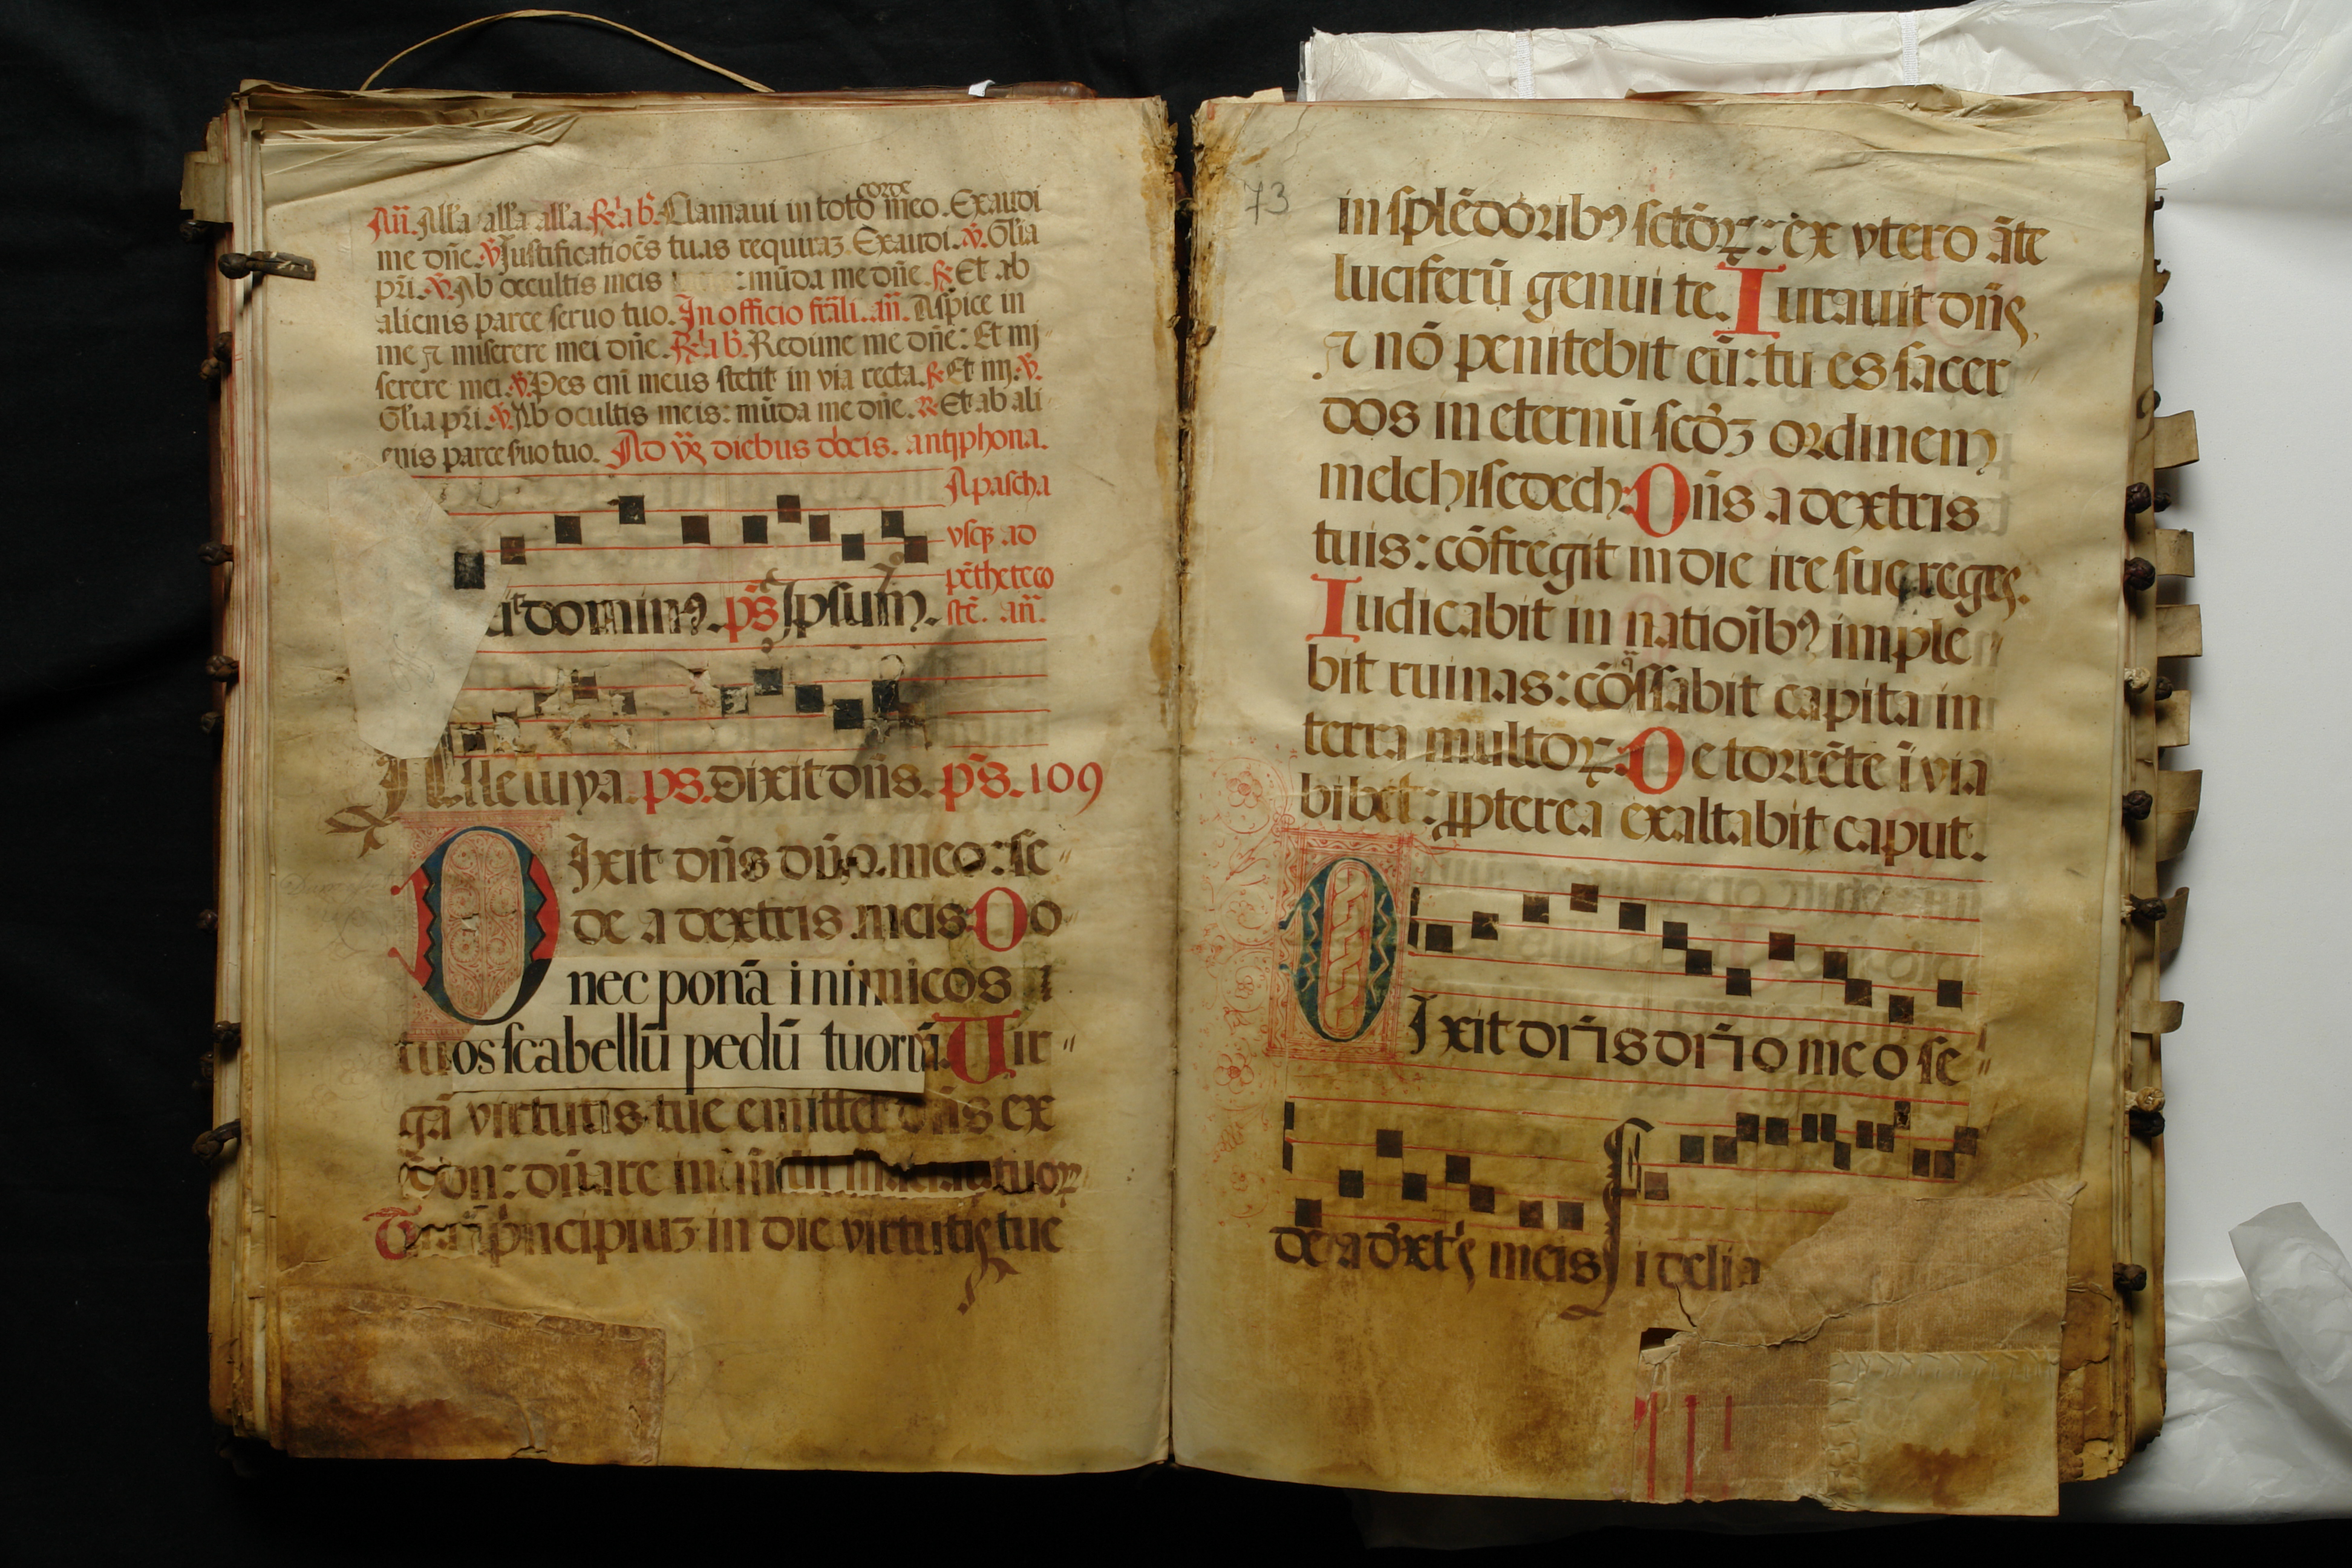 Añ. All'a all'a all'a. R̃. ab b̃. Clamaui in toto corde meo. Exaudi
me dñe. ℣. Justificatioēs tuas requiraʒ. Exaudi. ℣. Gl̃ia
pr̃i. ℣. Ab occultis meis : mũda me dñe. R̃. Et ab
alienis parce seruo tuo. In officio fr̃ali. añ. Aspice in
me ⁊ miserere mei dñe. R̃. b̃. Redime me dñe: Et mi
serere mei. ℣. Pes eni meus stetit in via recta. R̃. Et mi. ℣.
Gl̃ia pr̃i. ℣. Ab ocultis meis: mũda me dñe. R̃. Et ab ali
enis parce suo tuo. Ad diebus dõcis. antiphona.
A pascha
vsqꝫ ad
pẽthecco
stẽ. añ.
dominꝰ. p̃s. Ipsum.
Alleluya. ps. Dixit dñs. p̃s. 109
DIxit dñs dño meo: se
de a dextris meis. Do
nec ponā inimicos
tuos scabellū pedū tuorū. Uir
gā virtutis tue emittet dñs ex
dñare in tuoꝝ
Tecū principiuʒ in die virtutis tue
73
in splẽdoribꝰ sctõꝝ: ex vtero āte
luciferū genui te. Iurauit dñs
⁊ nō penitebit eū: tu es sacer
dos in eternū scdʒ ordinem
melchisedech. Dñs a dextris
tuis: cōfregit in die ire sue reges.
Iudicabit in natioībꝰ imple
bit ruinas: cōq̄ssabit capita in
terra multoꝝ. De torrēte ī via
bibet: ꝓpterea exaltabit caput.
DIxit dñs dño meo se
de a dext's meis Fidelia